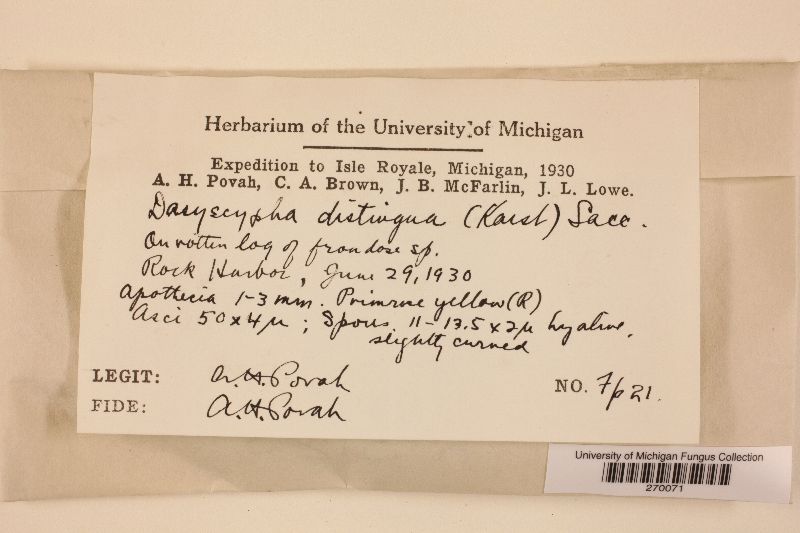 Herbarium of the University of Michigan
Expedition to Isle Royale, Michigan, 1930
A. H. Povah, C. A. Brown, J. B. McFarlin, J. L. Lowe.
Dasyscypha distingua (Karst) Sacc.
On rotten log of frondose sp.
Rock Harbor, June 29, 1930
Apothecia 1-3 mm. Primrose yellow (R)
Asci 50 x 4 µ ; Spores 11-13.5 x 2 µ hyaline,
slightly curved
LEGIT: A.H. Povah
NO.
FIDE: A.H. Povah
University of Michigan Fungus Collection
270071